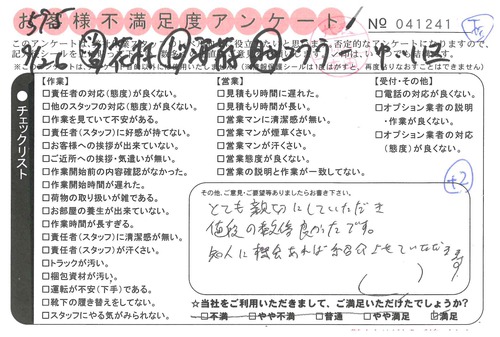 お客様不満足度アンケート
№ 041241
チェックリスト
【作業】
□責任者の対応(態度)が良くない。
□他のスタッフの対応(態度)が良くない。
□作業を見ていて不安がある。
□責任者(スタッフ)に好感が持てない。
□お客様への挨拶が出来ていない。
□ご近所への挨拶・気遣いが無い。
□作業開始前の内容確認がなかった。
□作業開始時間が遅れた。
□荷物の取り扱いが雑である。
□お部屋の養生が出来ていない。
□作業時間が長すぎる。
□責任者(スタッフ)に清潔感が無い。
□責任者(スタッフ)が汗くさい。
□トラックが汚い。
□梱包資材が汚い。
□運転が不安(下手)である。
□靴下の履き替えをしてない。
□スタッフにやる気がみられない。
【営業】
□見積もり時間に遅れた。
□見積もり時間が長い。
□営業マンに清潔感が無い。
□営業マンが煙草くさい。
□営業マンが汗くさい。
□営業態度が良くない。
□営業の説明と作業が一致してない。
【受付・その他】
□電話の対応が良くない。
□オプション業者の説明
・作業が良くない。
□オプション業者の対応
(態度)が良くない。
+2
その他、ご意見・ご要望等ありましたらお書き下さい。
とても親切にしていただき
値段の数倍良かったです。
知人に機会あれば紹介させていただきます
☆当社をご利用いただきまして、ご満足いただけたでしょうか?
□不満 □やや不満 □普通 □やや満足 □満足